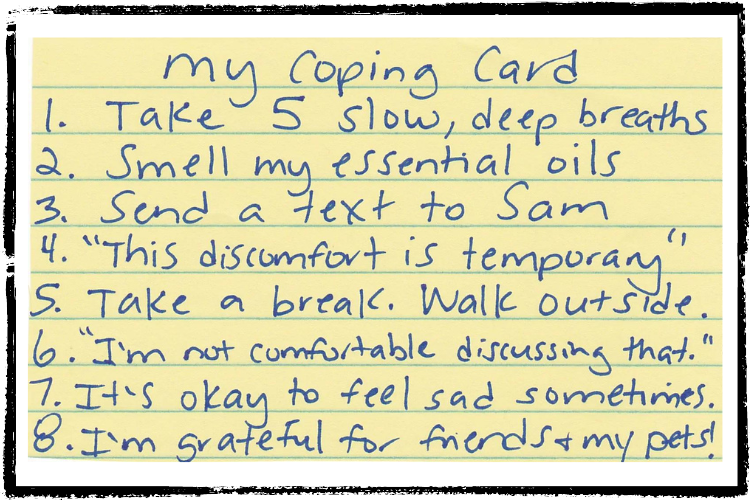 My Coping Card
1. Take 5 slow, deep breaths
2. Smell my essential oils
3. Send a text to Sam
4. "This discomfort is temporary"
5. Take a break. Walk outside.
6. "I'm not comfortable discussing that."
7. It's okay to feel sad sometimes.
8. I'm grateful for friends & my pets!